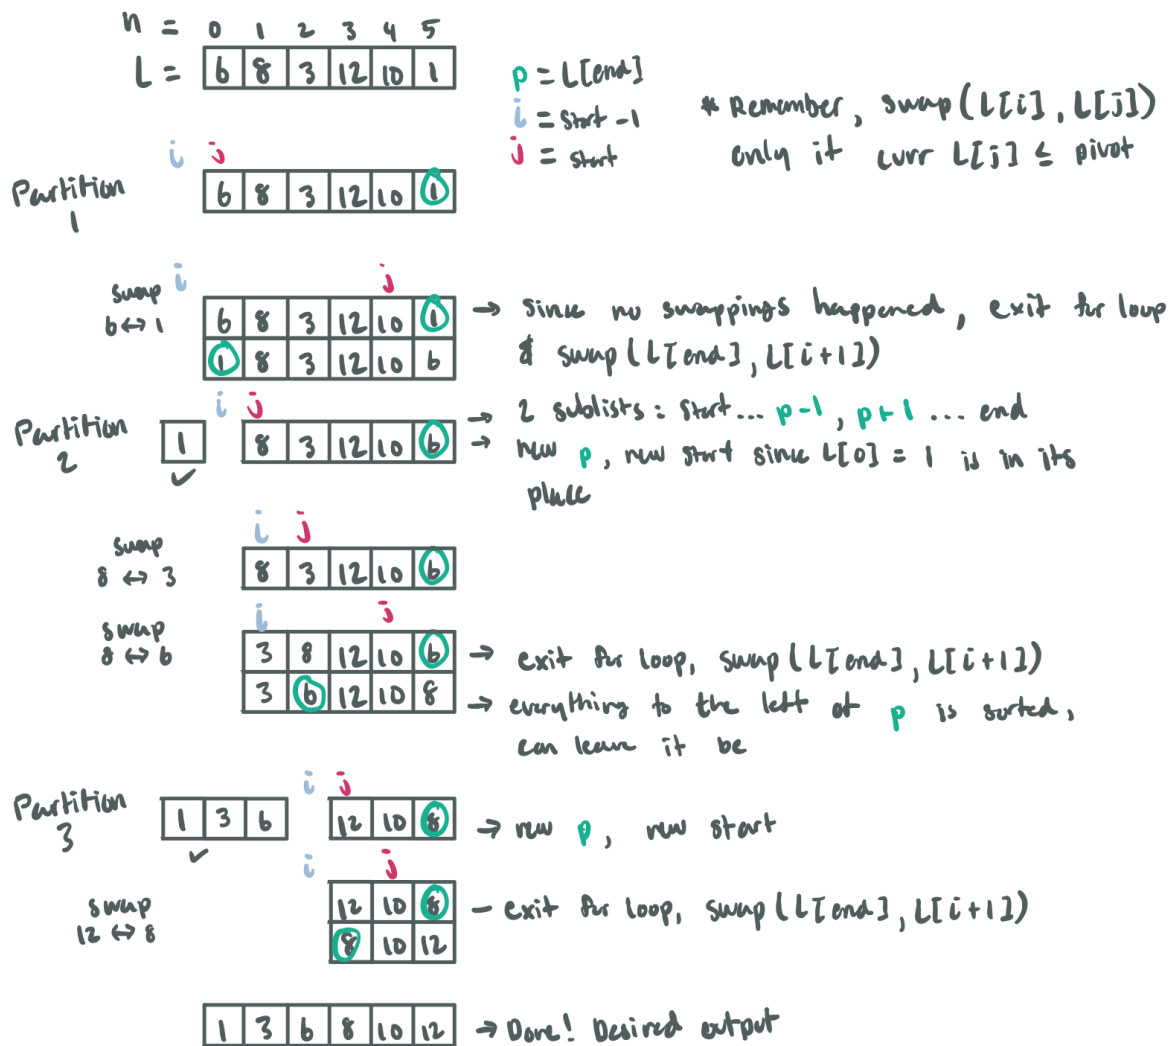 n = 0 1 2 3 4 5
L = 6 8 3 12 10 1
p = L[end]
i = start -1
j = start
* Remember, swap(L[i], L[j])
only if curr L[j] ≤ pivot
i j
Partition
1
6 8 3 12 10 1
i j
swap
6 ↔ 1
6 8 3 12 10 1
1 8 3 12 10 6
→ since no swappings happened, exit for loop
& swap(L[end], L[i+1])
i j
Partition
2
1
✓
8 3 12 10 6
→ 2 sublists: start... p-1, p+1 ... end
→ new p, new start since L[0] = 1 is in its
place
i j
swap
8 ↔ 3
8 3 12 10 6
i j
swap
8 ↔ 6
3 8 12 10 6
3 6 12 10 8
→ exit for loop, swap(L[end], L[i+1])
→ everything to the left of p is sorted,
can leave it be
i j
Partition
3
1 3 6
✓
12 10 8
→ new p, new start
i j
swap
12 ↔ 8
12 10 8
8 10 12
- exit for loop, swap(L[end], L[i+1])
1 3 6 8 10 12
→ Done! Desired output